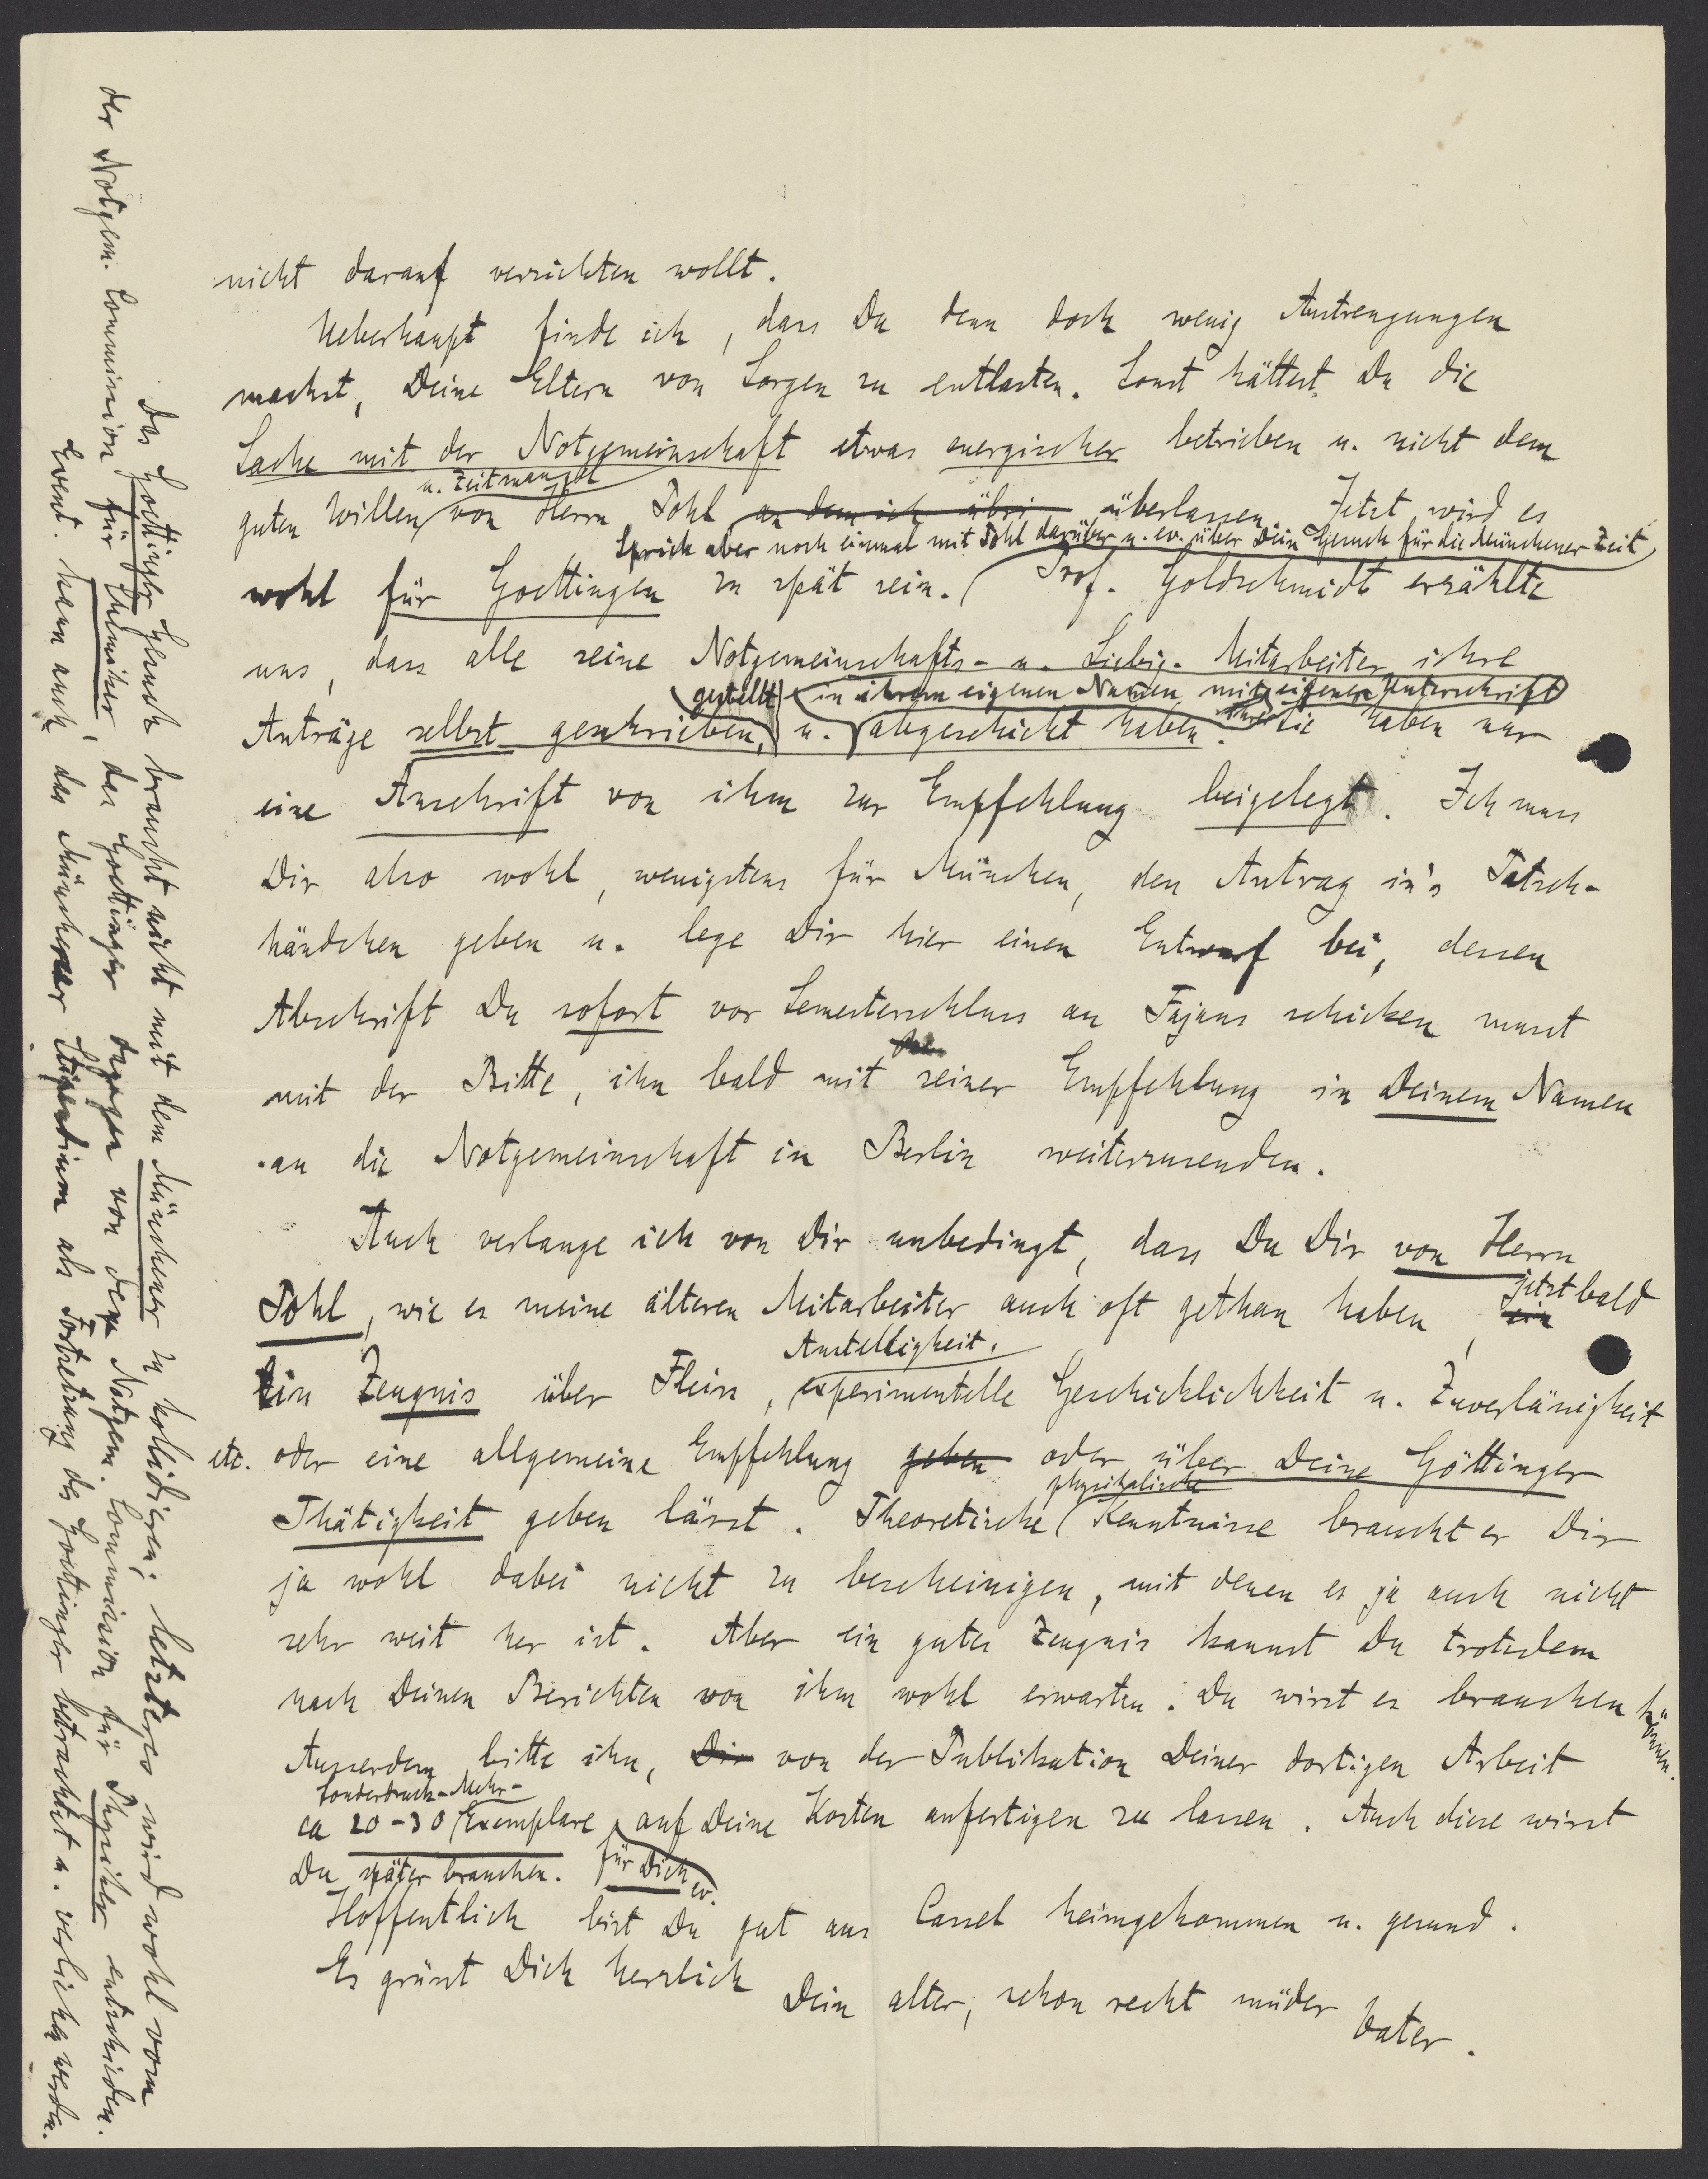 nicht darauf verzichten wollt.
Ueberhaupt finde ich, dass Du denn doch wenig Anstrengungen
machst, Deine Eltern von Sorgen zu entlasten. Sonst hättest Du die
Sache mit der Notgemeinschaft etwas energischer betrieben u. nicht dem
u. Zeitmangel
guten Willen von Herrn Pohl an dem ich übri überlassen. Jetzt wird es
Sprich aber noch einmal mit Pohl darüber u. ev. über Dein Gesuch für die Münchener Zeit
wohl für Goettingen zu spät sein. Prof. Goldschmidt erzählte
uns, dass alle seine Notgemeinschafts- u. Liebig-Mitarbeiter ihre
gestellt in ihrem eigenen Namen, mit eigener Unterschrift
Anträge selbst geschrieben, u. abgeschickt haben. Sie haben nur
eine Anschrift von ihm zur Empfehlung beigelegt. Ich muss
Dir also wohl, wenigstens für München, den Antrag in's Patsch-
händchen geben u. lege Dir hier einen Entwurf bei, dessen
Abschrift Du sofort vor Semesterschluss an Fajans schicken musst
mit der Bitte, ihn bald mit seiner Empfehlung in Deinem Namen
an die Notgemeinschaft in Berlin weiterzusenden.
Auch verlange ich von Dir unbedingt, dass Du Dir von Herrn
jetzt bald
Pohl, wie es meine älteren Mitarbeiter auch oft gethan haben, ein
Anstelligkeit,
Ein Zeugnis über Fleiss, experimentelle Geschicklichkeit u. Zuverlässigkeit
etc. oder eine allgemeine Empfehlung geben oder über Deine Göttinger
physikalische
Thätigkeit geben lässt. Theoretische Kenntnisse braucht er Dir
ja wohl dabei nicht zu bescheinigen, mit denen es ja auch nicht
sehr weit her ist. Aber ein gutes Zeugnis kannst Du trotzdem
nach Deinen Berichten von ihm wohl erwarten. Du wirst es brauchen können.
Ausserdem bitte ihn, Dir von der Publikation Deiner dortigen Arbeit
Sonderdruck-Mehr-
ca 20-30 Exemplare auf Deine Kosten anfertigen zu lassen. Auch diese wirst
Du später brauchen. für Dich ev.
Hoffentlich bist Du gut aus Cassel heimgekommen u. gesund.
Es grüsst Dich herzlich
Dein alter, schon recht müder
Vater.
Das Goettinger Gesuch braucht nicht mit dem Münchener zu kollidieren; letzteres wird wohl vom
der Notgem. Commission für Chemiker, das Goettinger dagegen von der Notgem. Commission für Physiker entschieden.
Event. kann auch das Münchener Stipendium als Fortsetzung des Goettinger betrachtet u. verliehen werden.